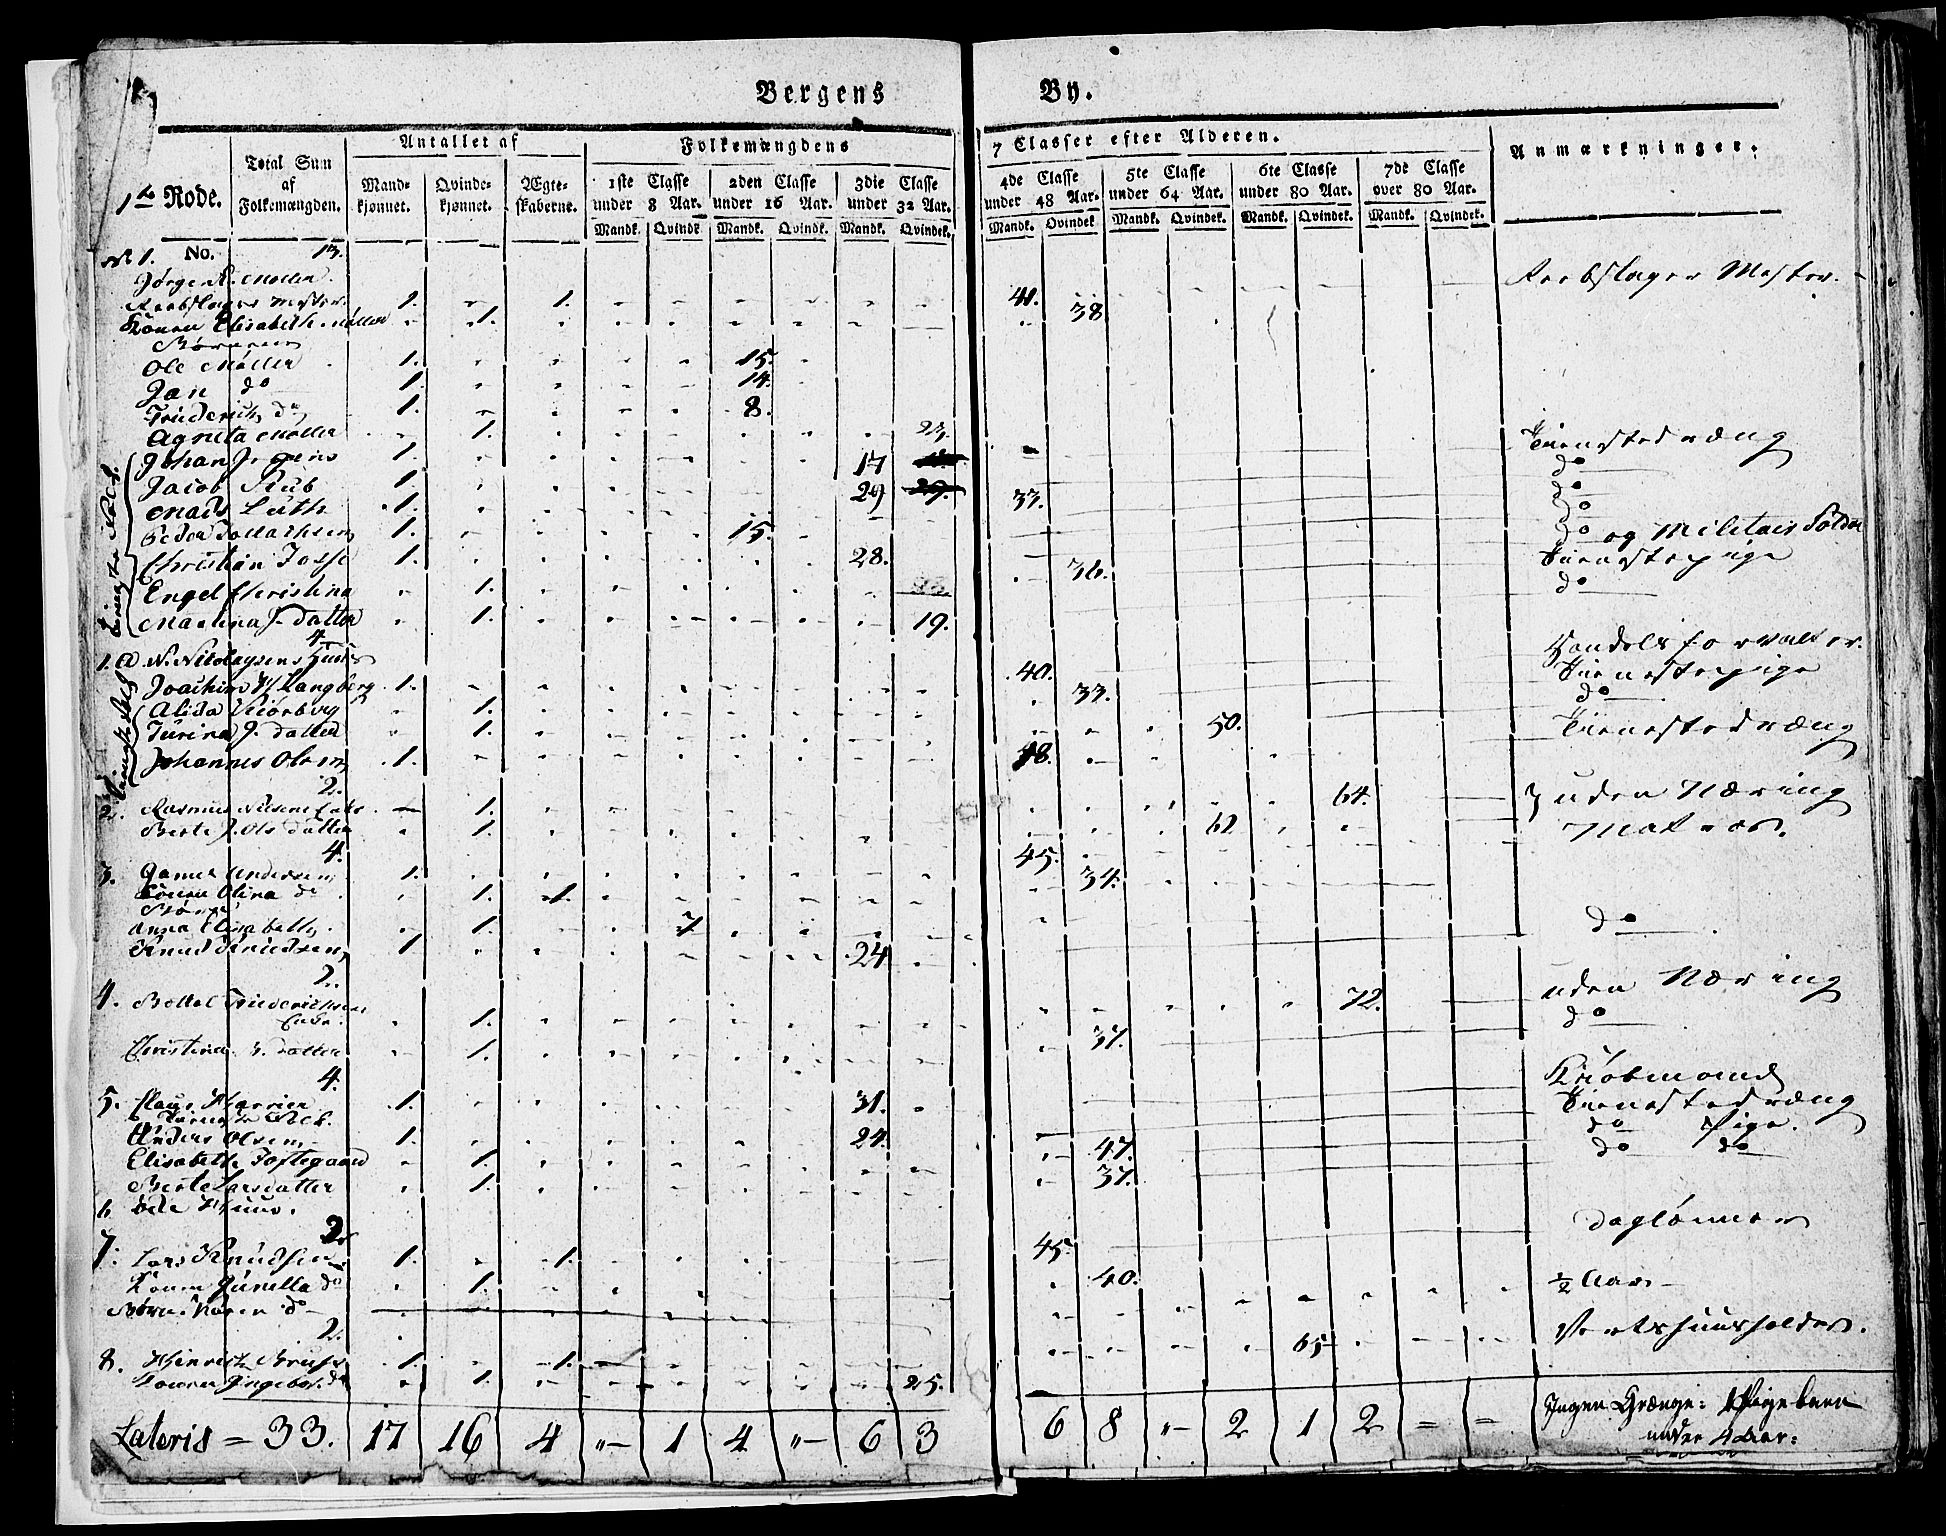 Bergens By.
1te Rode.
Total Sum af Folkemængden.
Antallet af
Mandkjønnet.
Qvindekjønnet.
Ægteskaberne.
Folkemængdens 7 Classer efter Alderen.
1ste Classe under 8 Aar.
2den Classe under 16 Aar.
3die Classe under 32 Aar.
4de Classe under 48 Aar.
5te Classe under 64 Aar.
6te Classe under 80 Aar.
7de Classe over 80 Aar.
Anmærkninger.
Mandk. Qvindk. Mandk. Qvindk. Mandk. Qvindek. Mandk. Qvindek. Mandk. Qvindek. Mandk. Qvindek. Mandk. Qvindek.
No 1. No. 13.
Jørgen Møller
Reebslager Mester 1. 1. 41. Reebslager Mester
Konen Elisabeth Møller 1. 38
Børnene
Ole Møller 1. 15.
Jan do 1. 14.
Friderich do 1. 8.
Agneta Møller 1. 23.
Tieneste Folk
Johan Jørgens 1. 17 Tienestedræng
Jacob 1. 29 do
Mads Luth 1. 33. do
Peder 1. 15. do
Christian Fosse 1. 28. do og Militair
Engel Christina 1. 36. Tienestepige
Martina J. Datter 1. 19. do
4
1. a N. Nicolaysens Huus
Joachim Langberg 1. 40. Handelsforvalter.
Tieneste Folk
Alida 1. 33. Tienestepige
J. Datter 1. 50. do
Johannes Olsen 1. 18. Tienestedræng
2.
2. Rasmus Nilsens Enke 1. 64. uden Næring
Berte J. Ols Datter 1. 61
4.
3. Andersen 1. 45. Matros.
Konen Olina do 1. 1. 34.
Børn
Anna Elisabeth 1. 7
Knud Knudsen 1 24 do
2.
4. Friderichsens
Enke. 1. 72. uden Næring
Christina Datter 1. 37. do
4.
5. Claus 1. 31. Kiøbmand
Tieneste Folk.
Anders Olsen 1. 24. Tienestedræng
Elisabeth 1. 47. do Pige.
Berte Larsdatter 1. 37. do do
6. Øde Huus.
2
7. Lars Knudsen 1. 1. 45 Daglønner
Konen Gunilla do 1. 40.
Børn: Karen do ½ Aar
2.
8. Hinrich 1. 1. 65 Vertshuusholder.
Konen Ingebor. do 1. 25.
Lateris = 33. 17 16 4 "- 1 4 "- 6 3 6 8 "- 2 1 2 = =
Ingen Drænge: 1 Pige barn
under 4 Aar: